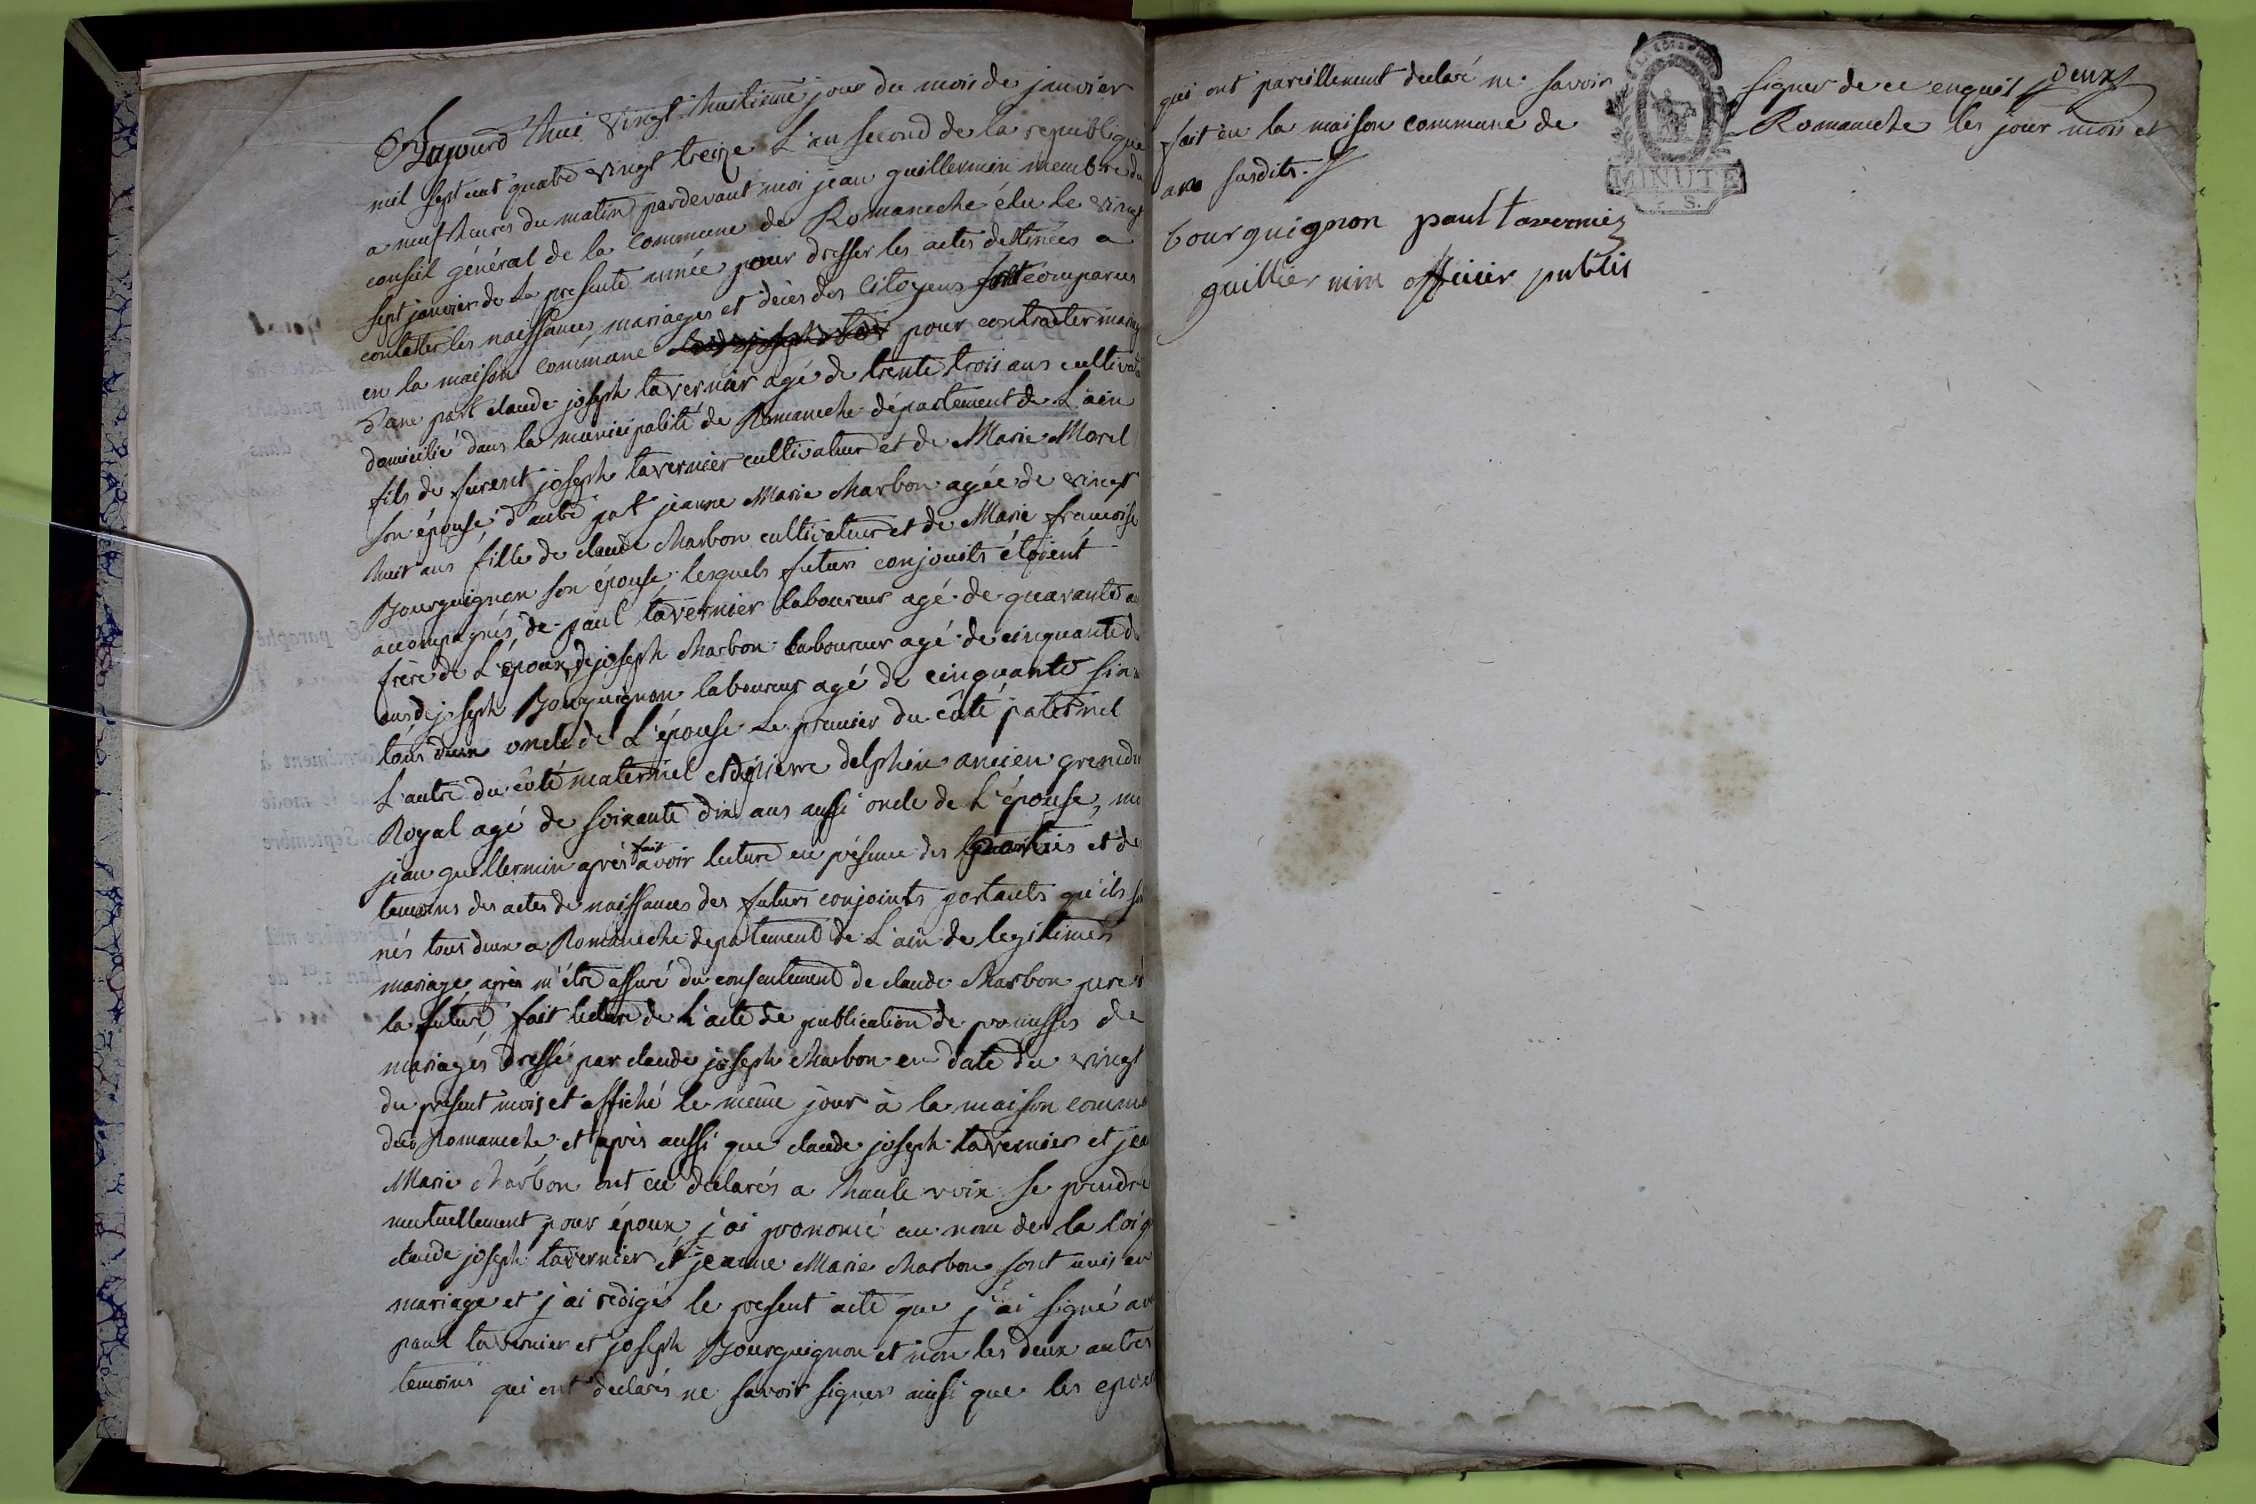 Aujourd'hui vingt-huitieme jour du mois de janvier
mil sept cent quatre vingt treize L'an second de la republique
a neuf heures du matin pardevant moi jean guillermin membre du
conseil général de la commune de Romaneche élu le vingt
sept janvier de la presente année pour dresser les actes destinées a
constater les naissances, mariages et décès des Citoyens sont comparus
en la maison commune pour contracter mariage
d'une part claude joseph tavernier agé de trente trois ans cultivat
domicilié dans la municipalité de Romaneche département de L'ain
fils de furent joseph tavernier cultivateur et de Marie Morel
son épouse, d'autre part jeanne Marie Charbon agée de vingt
huit ans fille de claude Charbon cultivateur et de Marie francoise
Bourguignon son épouse lesquels futurs conjoints étoient
accompagnés de paul tavernier laboureur agé de quarante an
frere de L'époux, de joseph Charbon laboureur agé de cinquante d
ans de joseph Bourguignon laboureur agé de cinquante six
tous deux oncle de L'épouse Le premier du côté paternel
L'autre du côté maternel et de pierre delphin ancien grenad
Royal agé de soixante dix ans aussi oncle de L'épouse, m
jean guillermin après avoir fait lecture en présence des parties et de
temoins des actes de naissances des futurs conjoints portants qu'ils s
nés tous deux a Romaneche departement de L'ain de legitimes
mariage, après m'être assuré du consentement de claude Charbon pere d
la future, fait lecture de L'acte de publication de promesses de
mariages dressé par claude joseph Charbon en date du vingt
du present mois et affiché le même jour à la maison comm
de Romaneche et après aussi que claude joseph tavernier et jea
Marie Charbon ont eu declarés a haute voix se prendre
mutuellement pour époux, j'ai prononcé au nom de la loi q
claude joseph tavernier et jeanne Marie Charbon sont unis en
mariage et j'ai redigé le present acte que j'ai signé av
paul tavernier et joseph Bourguignon et non les deux autres
temoins qui ont declarés ne savoir signer ainsi que les epou
qui ont pareillement declaré ne savoir signer de ce enquis deux
fait en la maison commune de Romaneche les jour mois et
an susdits.
bourguignon paul tavernier
guilliermin officier public
MINUTE